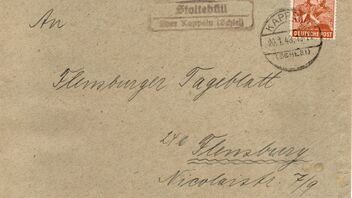 Stoltebüll
über Kappeln (Schlei)
KAPPELN
(SCHLEI)
DEUTSCHE POST
An
Flensburger Tageblatt
24b Flensburg
Nicolaistr. 7/9